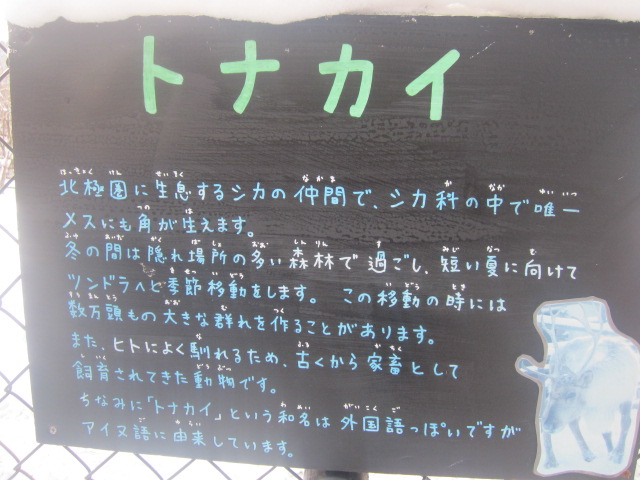 トナカイ
北極圏に生息するシカの仲間で、シカ科の中で唯一
メスにも角が生えます。
冬の間は隠れ場所の多い森林で過ごし、短い夏に向けて
ツンドラへと季節移動をします。この移動の時には
数万頭もの大きな群れを作ることがあります。
また、ヒトによく馴れるため、古くから家畜として
飼育されてきた動物です。
ちなみに「トナカイ」という和名は外国語っぽいですが
アイヌ語に由来しています。